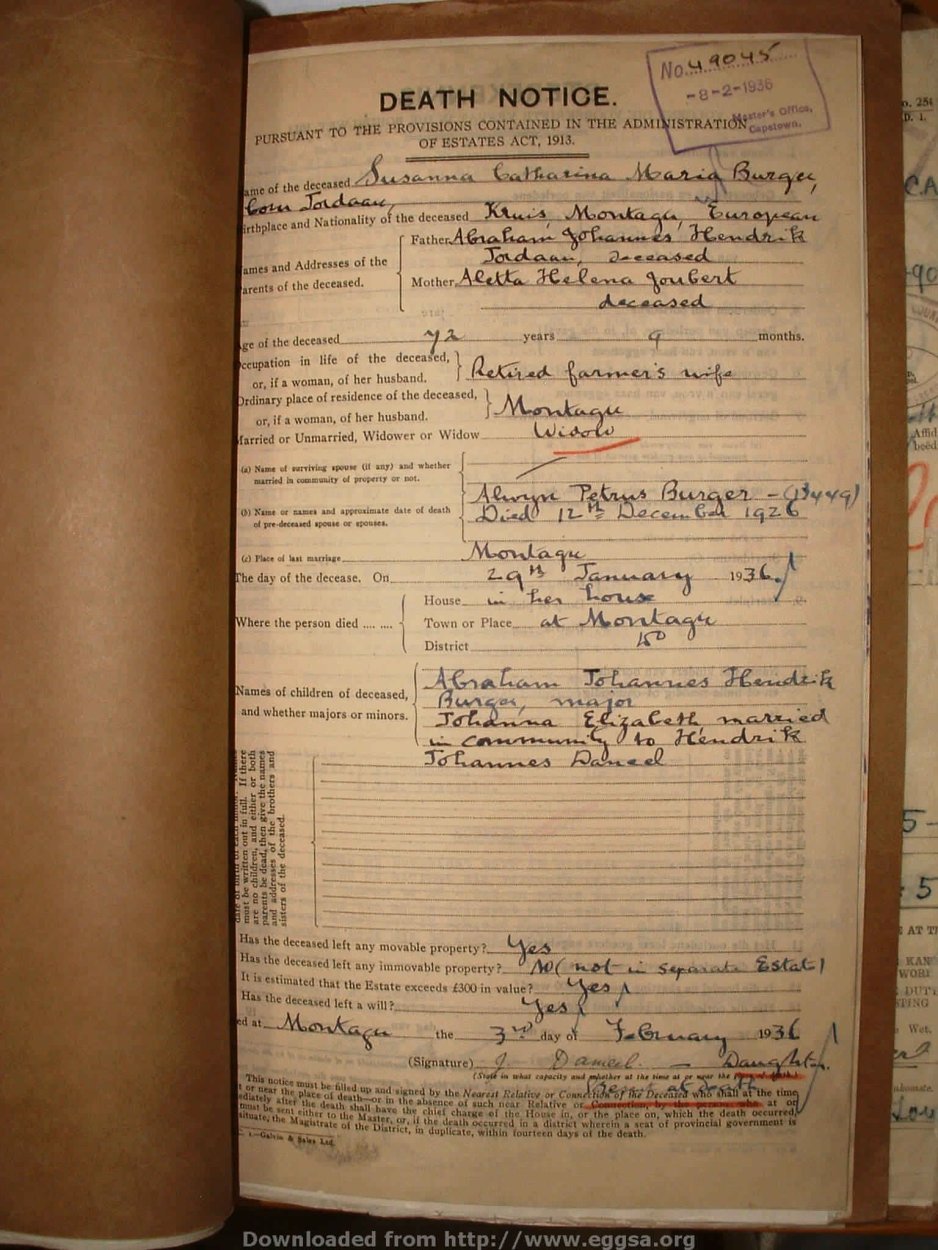 No. 49045
-8-2-1936
Master's Office,
Capetown.
DEATH NOTICE.
PURSUANT TO THE PROVISIONS CONTAINED IN THE ADMINISTRATION
OF ESTATES ACT, 1913.
ame of the deceased Susanna Catharina Maria Burger,
born Jordaan,
irthplace and Nationality of the deceased Kruis, Montagu, European
Father Abraham Johannes Hendrik
Jordaan, deceased
ames and Addresses of the
arents of the deceased.
Mother Aletta Helena Joubert
deceased
ge of the deceased 72 years 9 months.
ccupation in life of the deceased,
or, if a woman, of her husband. Retired farmer's wife
Ordinary place of residence of the deceased,
or, if a woman, of her husband. Montagu
Married or Unmarried, Widower or Widow Widow
(a) Name of surviving spouse (if any) and whether
married in community of property or not.
Alwyn Petrus Burger - (13449)
(b) Name or names and approximate date of death
of pre-deceased spouse or spouses.
Died 12th December 1926
(c) Place of last marriage Montagu
The day of the decease, On 29th January 1936.
House in her house
Where the person died .... .... Town or Place at Montagu
District do
Names of children of deceased,
and whether majors or minors.
Abraham Johannes Hendrik
Burger, major
Johanna Elizabeth married
in community to Hendrik
Johannes Daneel
must be written out in full. If there
are no children, and either or both
parents be dead, then give the names
and addresses of the brothers and
sisters of the deceased.
Has the deceased left any movable property? Yes
Has the deceased left any immovable property? No (not in separate Estate)
It is estimated that the Estate exceeds £300 in value? Yes
Has the deceased left a will? Yes
ed at Montagu the 3rd day of February 1936
(Signature) J Daneel - Daughter.
(State in what capacity and whether at the time at or near the place of death.)
Present at death
This notice must be filled up and signed by the Nearest Relative or Connection of the Deceased who shall at the time
t or near the place of death—or in the absence of such near Relative or Connection, by the person who at or
ediately after the death shall have the chief charge of the House in, or the place on, which the death occurred,
must be sent either to the Master, or, if the death occurred in a district wherein a seat of provincial government is
situate, the Magistrate of the District, in duplicate, within fourteen days of the death.
1.—Galvin & Sales Ltd.
Downloaded from http://www.eggsa.org